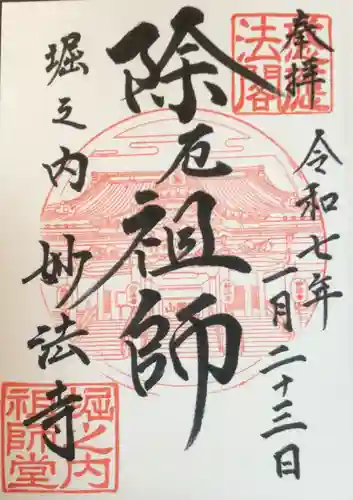 奉拝
令和七年
一月二十三日
除厄祖師
堀之内
妙法寺
法閣
堀之内
祖師堂